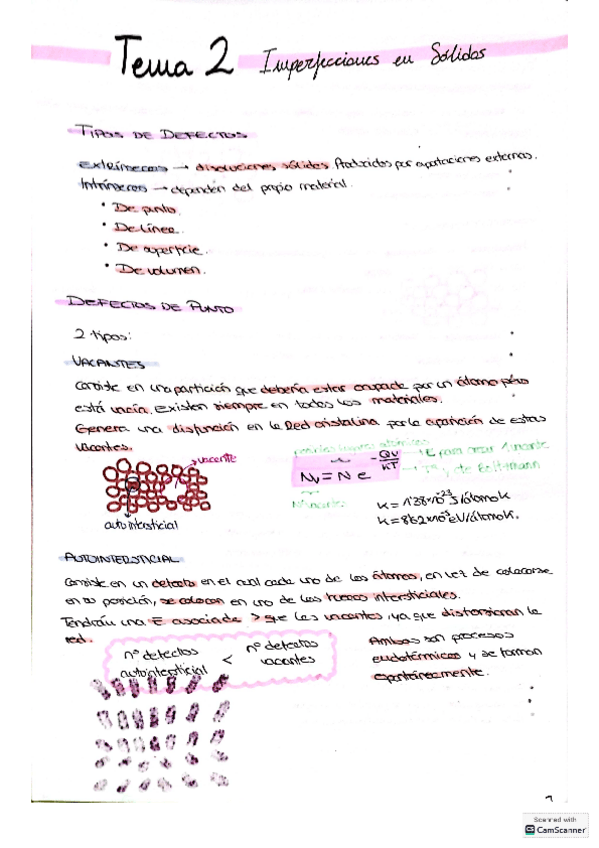 Tema 2 Imperfecciones en Sólidos
TIPOS DE DEFECTOS
Extrínsecos → disoluciones sólidas. Producidos por aportaciones externas.
Intrínsecos → dependen del propio material.
• De punto.
• De línea.
• De superficie.
• De volumen.
DEFECTOS DE PUNTO
2 tipos:
VACANTES
Consiste en una partición que debería estar ocupada por un átomo pero
está vacía. Existen siempre en todos los materiales.
Genera una disfunción en la Red cristalina por la aparición de estas
vacantes.
vacante
autointersticial
Nv = N e -Qv/KT
E para crear 1 vacante
de Boltzmann
Nº vacantes
K = 1'38·10⁻²³ J/átomo K
K = 8'62·10⁻⁵ eV/átomo K.
AUTOINTERSTICIAL
Consiste en un defecto en el cual cada uno de los átomos, en vez de colocarse
en su posición, se colocan en uno de los huecos intersticiales.
Tendrán una E asociada > que las vacantes, ya que distorsionan la
red.
nº defectos autointersticial < nº defectos vacantes
Ambos son procesos
endotérmicos y se forman
espontáneamente.
1
Scanned with
CamScanner